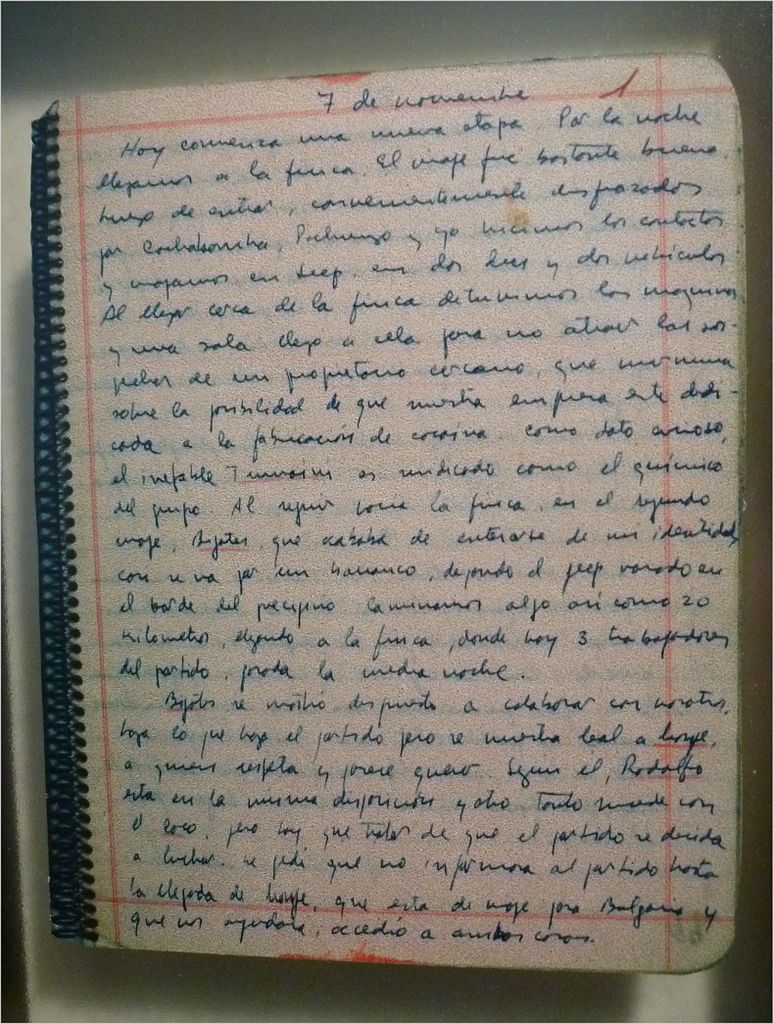 7 de noviembre 1
Hoy comienza una nueva etapa. Por la noche
llegamos a la finca. El viaje fue bastante bueno.
Luego de entrar, convenientemente disfrazados
por Cochabamba, Pachungo y yo hicimos los contactos
y viajamos en jeep, en dos días y dos vehículos
Al llegar cerca de la finca detuvimos las máquinas
y una sola llegó a ella para no atraer las sos-
pechas de un propietario cercano, que murmura
sobre la posibilidad de que nuestra empresa esté dedi-
cada a la fabricación de cocaína. Como dato curioso,
el inefable Tumaini es indicado como el químico
del grupo. Al seguir hacia la finca, en el segundo
viaje, Bigotes, que acababa de enterarse de mi identidad,
casi se va por un barranco, dejando el jeep varado en
el borde del precipicio. Caminamos algo así como 20
kilómetros, llegando a la finca, donde hay 3 trabajadores
del partido, pasada la media noche.
Bigotes se mostró dispuesto a colaborar con nosotros,
haga lo que haga el partido pero se muestra leal a
a quien respeta y parece querer. Según él, Rodolfo
está en la misma disposición y otro tanto sucede con
el loco, pero hay que tratar de que el partido se decida
a luchar. Le pedí que no informara al partido hasta
la llegada de que está de viaje para Bulgaria y
que nos ayudara, accedió a ambas cosas.